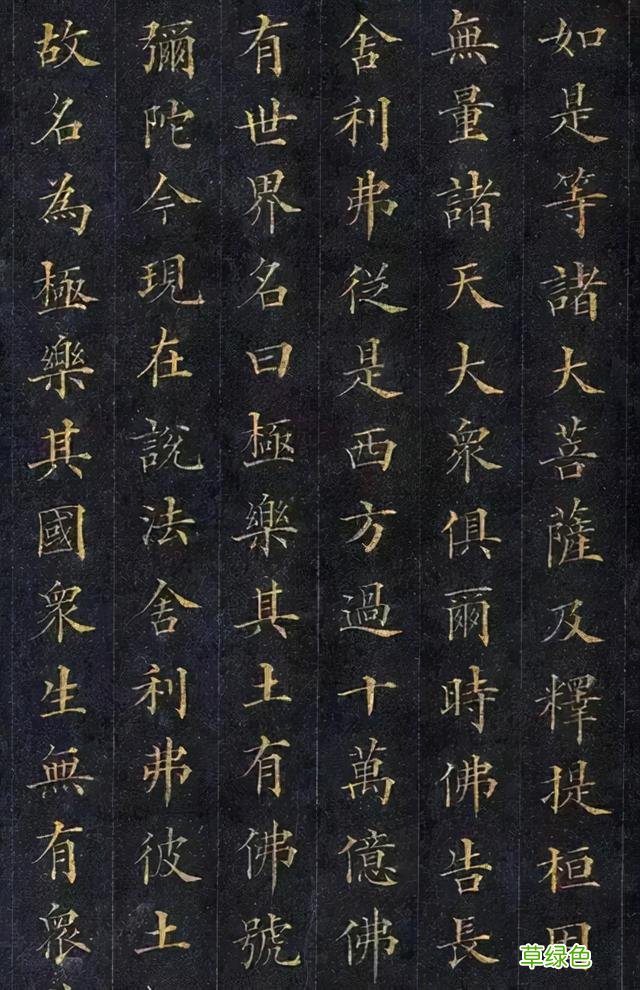 如是等諸大菩薩及釋提桓因
無量諸天大衆俱爾時佛告長
舍利弗從是西方過十萬億佛
有世界名曰極樂其土有佛號
彌陀今現在說法舍利弗彼土
故名為極樂其國衆生無有衆
草绿色